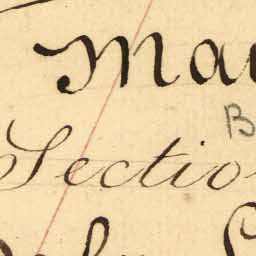 Ma
B
Sectio